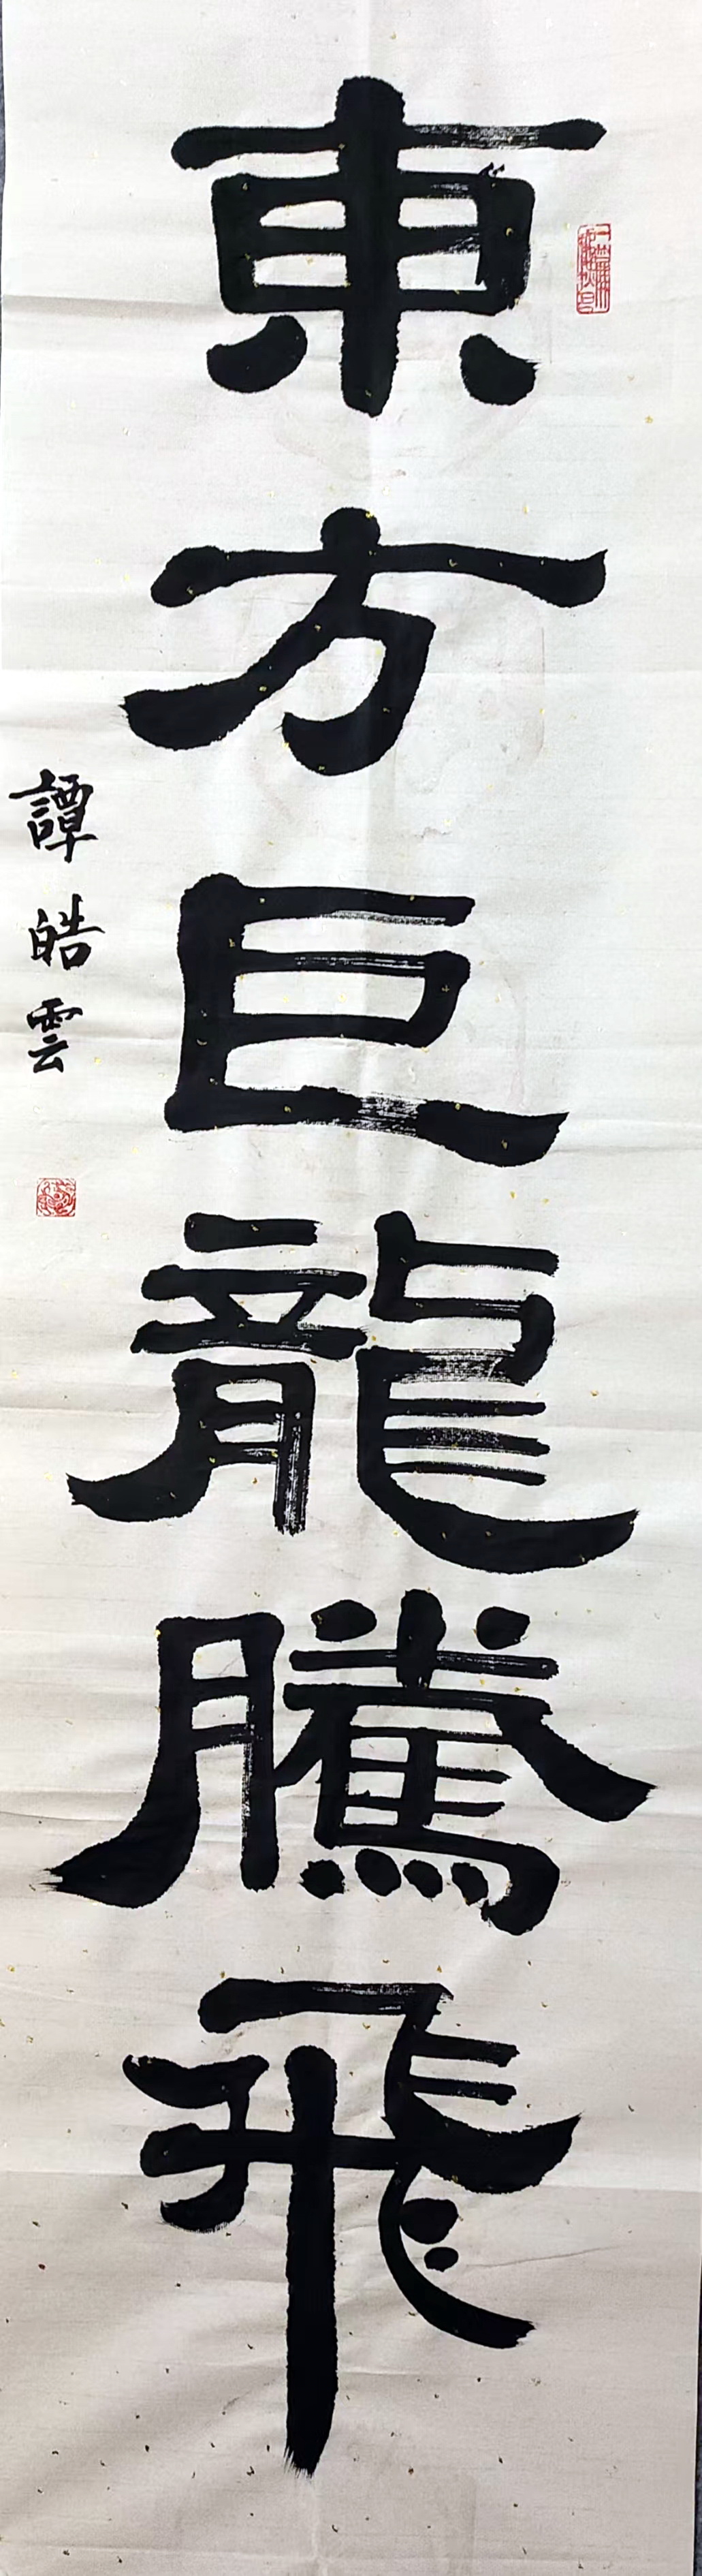 東方巨龍騰飛
譚皓雲